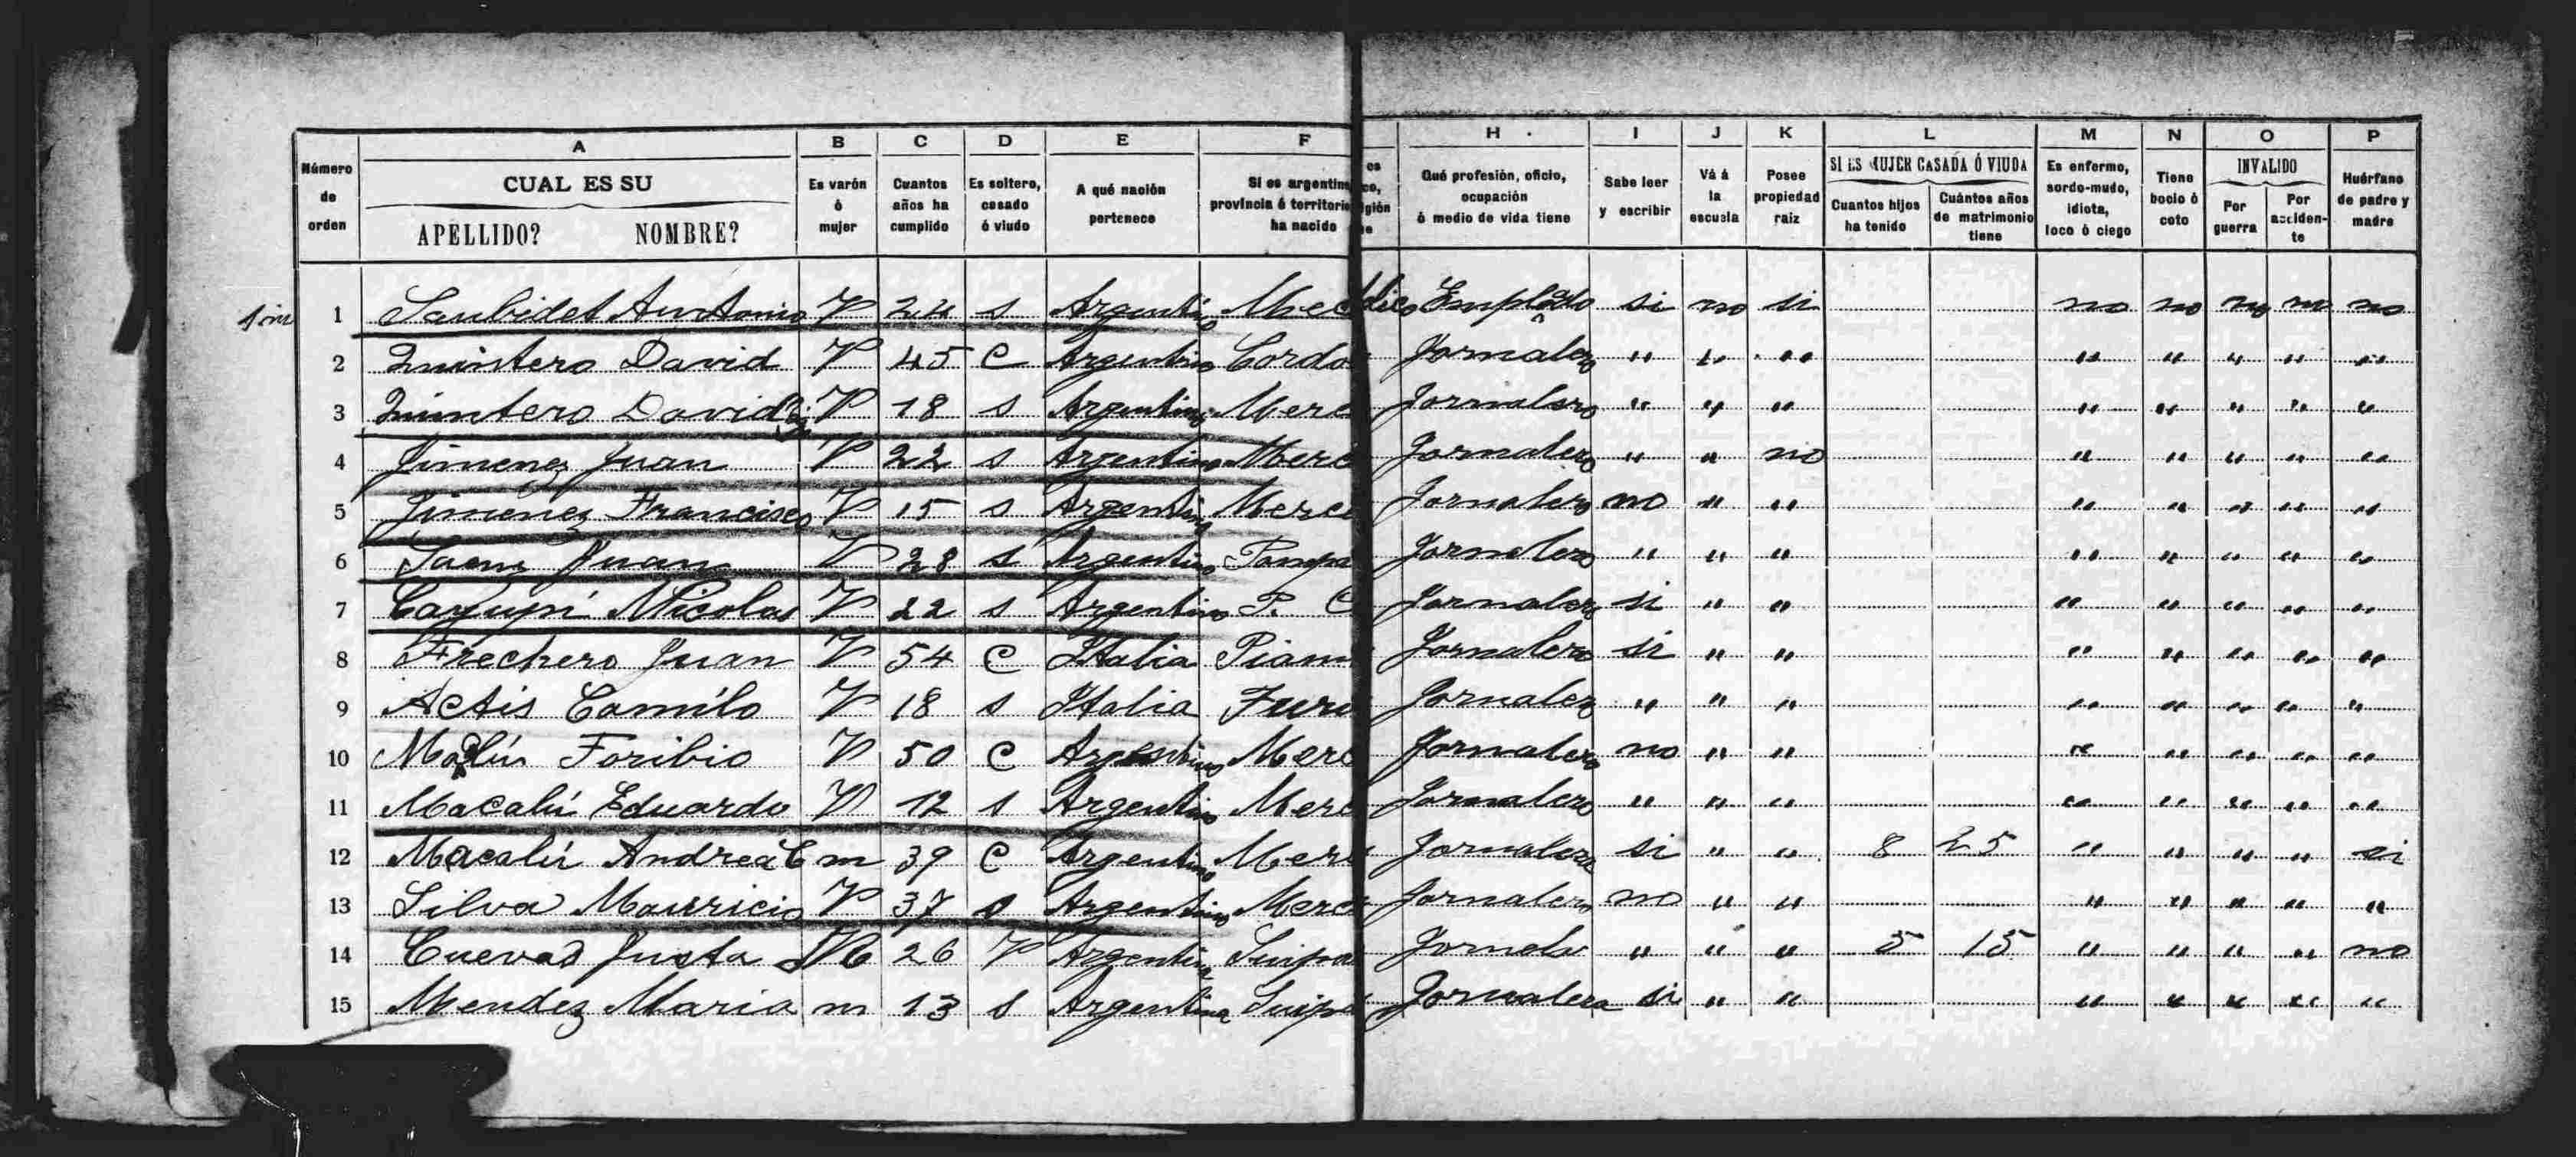 A B C D E F H . I J K L M N O P
Número de orden
CUAL ES SU
APELLIDO? NOMBRE?
Es varón ó mujer
Cuantos años ha cumplido
Es soltero, casado ó viudo
A qué nación pertenece
Si es argentino
provincia ó territorio
ha nacido
Qué profesión, oficio, ocupación ó medio de vida tiene
Sabe leer y escribir
Vá á la escuela
Posee propiedad raiz
SI ES MUJER CASADA Ó VIUDA
Cuantos hijos ha tenido
Cuántos años de matrimonio tiene
Es enfermo, sordo-mudo, idiota, loco ó ciego
Tiene bocio ó coto
INVALIDO
Por guerra
Por acciden-te
Huérfano de padre y madre
1 Saubidet Antonio V 24 s Argentino Merc Empleado si no si no no no no no
2 Quintero David V 45 C Argentino Cordo Jornalero " " " " " " " "
3 Quintero David V 18 s Argentino Merc Jornalero " " " " " " " "
4 Jimenez Juan V 22 s Argentino Merc Jornalero " " no " " " " "
5 Jimenez Francisco V 15 s Argentino Merce Jornalero no " " " " " " "
6 Juan V 28 s Argentino Pampa Jornalero " " " " " " " "
7 Nicolas V 22 s Argentino P. C Jornalero si " " " " " " "
8 Frechero Juan V 54 C Italia Piam Jornalero si " " " " " " "
9 Actis Camilo V 18 s Italia Turi Jornalero " " " " " " " "
10 Toribio V 50 C Argentino Merc Jornalero no " " " " " " "
11 Macalú Eduardo V 12 s Argentino Merc Jornalero " " " " " " " "
12 Macalú Andrea C m 39 C Argentino Merc Jornalera si " " 8 25 " " " " si
13 Silva Mauricio V 37 s Argentino Merc Jornalero no " " " " " " "
14 Cuevas Justa M 26 V Argentina Suipa Jornale " " " 5 15 " " " " no
15 Mendez Maria m 13 s Argentina Suipa Jornalera si " " " " " " "